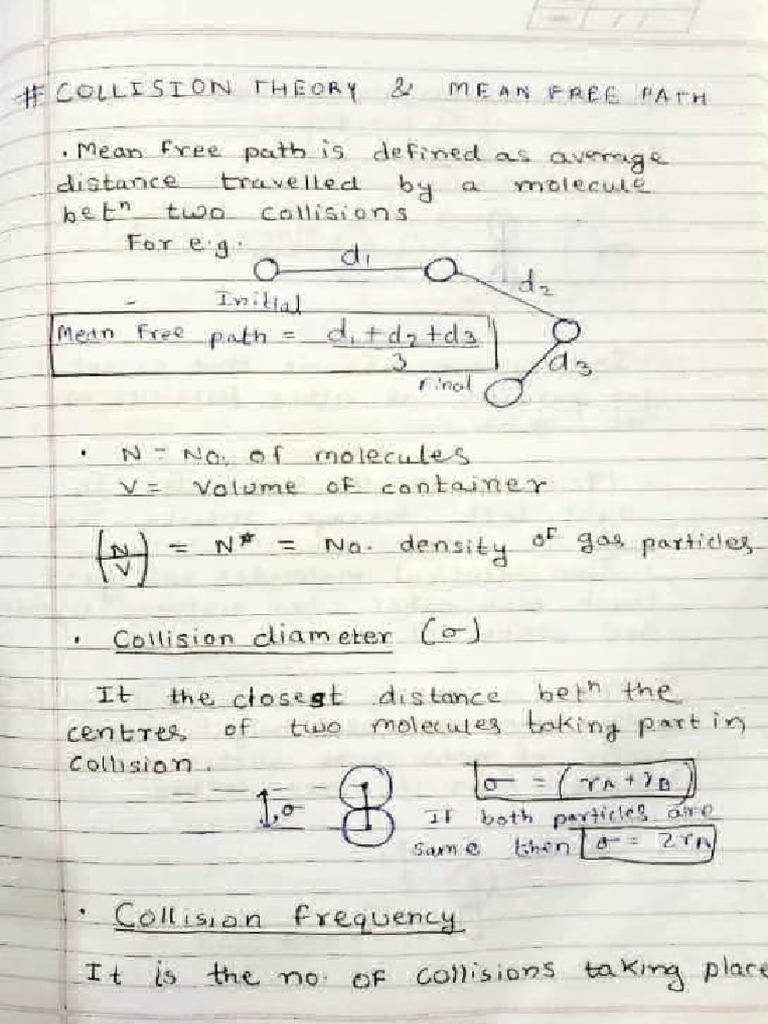 # COLLISION THEORY & MEAN FREE PATH
. Mean free path is defined as average
distance travelled by a molecule
betⁿ two collisions
For e.g.
d₁
d₂
Initial
Mean free path = d₁+d₂+d₃
3
d₃
Final
· N = No. of molecules
V = Volume of container
(N/V) = N* = No. density of gas particles
· Collision diameter (σ)
It the closest distance betⁿ the
centres of two molecules taking part in
collision.
σ
σ = (rA + rB)
If both particles are
same then σ = 2rA
· Collision frequency
It is the no. of collisions taking place